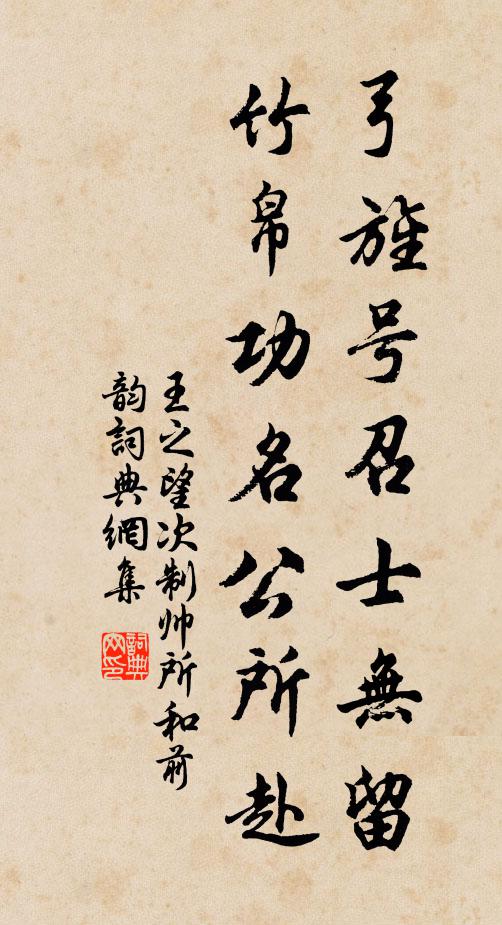 弓旌号召士無留
竹帛功名公所赴
王之望次制帅所和前
韵詞典網集
詞典網印